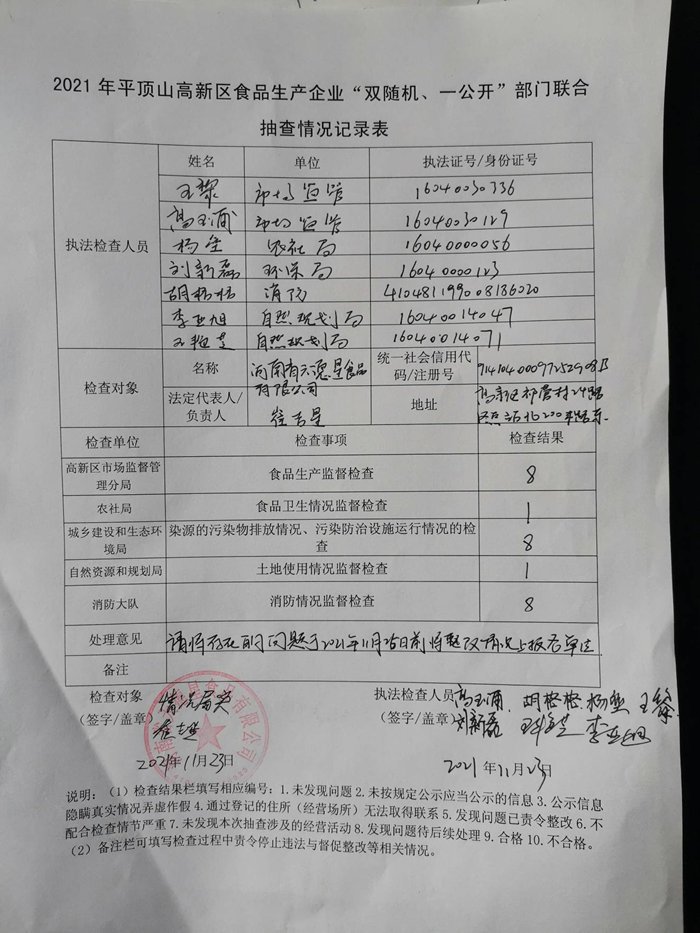 2021年平顶山高新区食品生产企业“双随机、一公开”部门联合
抽查情况记录表
执法检查人员 姓名 单位 执法证号/身份证号
市场监管 16040030336
市场监管 16040030129
农社局 16040000056
刘新磊 环保局 16040000123
胡格格 消防 410481199008186020
李亚旭 自然规划局 16040014047
自然规划局 16040014071
检查对象 名称 食品有限公司 统一社会信用代码/注册号
法定代表人/负责人 地址 高新区
检查单位 检查事项 检查结果
高新区市场监督管理分局 食品生产监督检查 8
农社局 食品卫生情况监督检查 1
城乡建设和生态环境局 染源的污染物排放情况、污染防治设施运行情况的检查 8
自然资源和规划局 土地使用情况监督检查 1
消防大队 消防情况监督检查 8
处理意见 请将存在的问题于2021年11月25日前将整改情况上报各单位
备注
检查对象 情况属实
(签字/盖章)
执法检查人员 胡格格
(签字/盖章) 刘新磊 李亚旭
2021年11月23日
2021年11月23日
说明：（1）检查结果栏填写相应编号：1.未发现问题 2.未按规定公示应当公示的信息 3.公示信息
隐瞒真实情况弄虚作假 4.通过登记的住所（经营场所）无法取得联系 5.发现问题已责令整改 6.不
配合检查情节严重 7.未发现本次抽查涉及的经营活动 8.发现问题待后续处理 9.合格 10.不合格。
（2）备注栏可填写检查过程中责令停止违法与督促整改等相关情况。